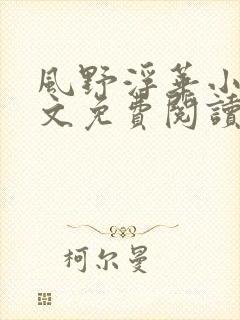 風野浮华小
文免費閱讀
柯尔曼